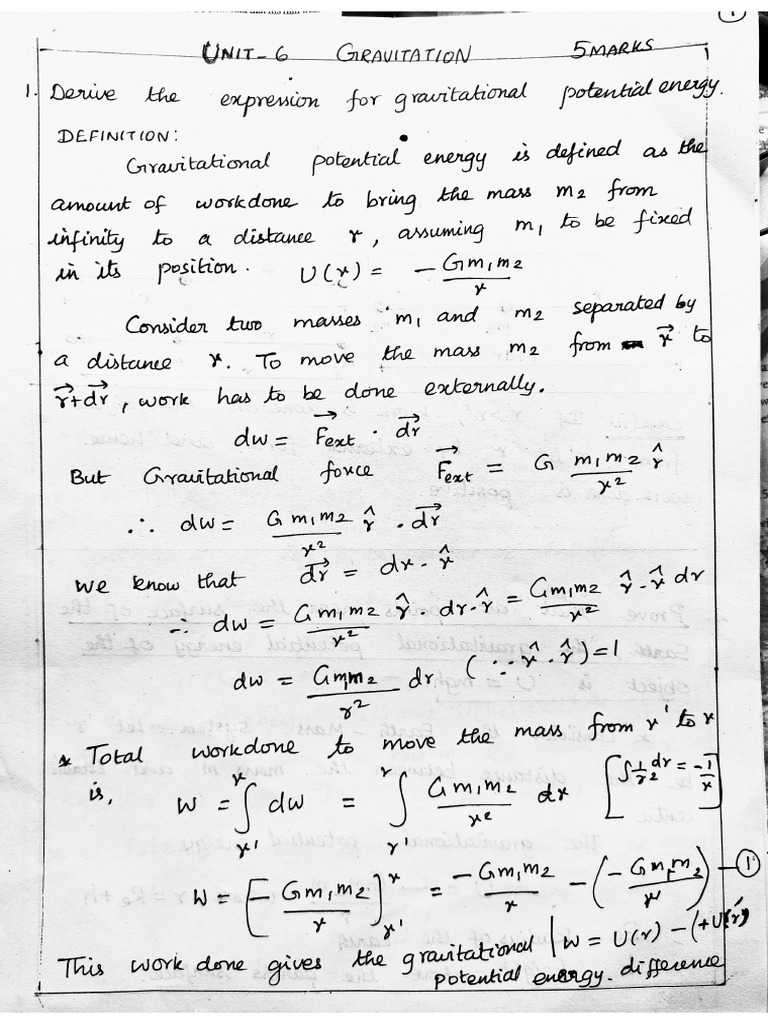 UNIT-6 GRAVITATION 5MARKS
1. Derive the expression for gravitational potential energy.
DEFINITION:
Gravitational potential energy is defined as the
amount of workdone to bring the mass m2 from
infinity to a distance r, assuming m1 to be fixed
in its position. U(r) = - Gm1m2/r
Consider two masses m1 and m2 separated by
a distance r. To move the mass m2 from r⃗ to
r⃗+dr⃗, work has to be done externally.
dw = F⃗ext · dr⃗
But Gravitational force F⃗ext = G m1m2/r² r̂
∴ dw = Gm1m2/r² r̂ . dr⃗
we know that dr⃗ = dr . r̂
∴ dw = Gm1m2/r² r̂ . dr . r̂ = Gm1m2/r² r̂ . r̂ dr
dw = Gm1m2/r² dr (∵ r̂ . r̂) = 1
* Total workdone to move the mass from r' to r
is, W = ∫r'^r dw = ∫r'^r Gm1m2/r² dr [∫1/r² dr = -1/r]
W = [- Gm1m2/r]r'^r = -Gm1m2/r - (-Gm1m2/r') — 1
This work done gives the gravitational | W = U(r) - (+U(r')
potential energy difference